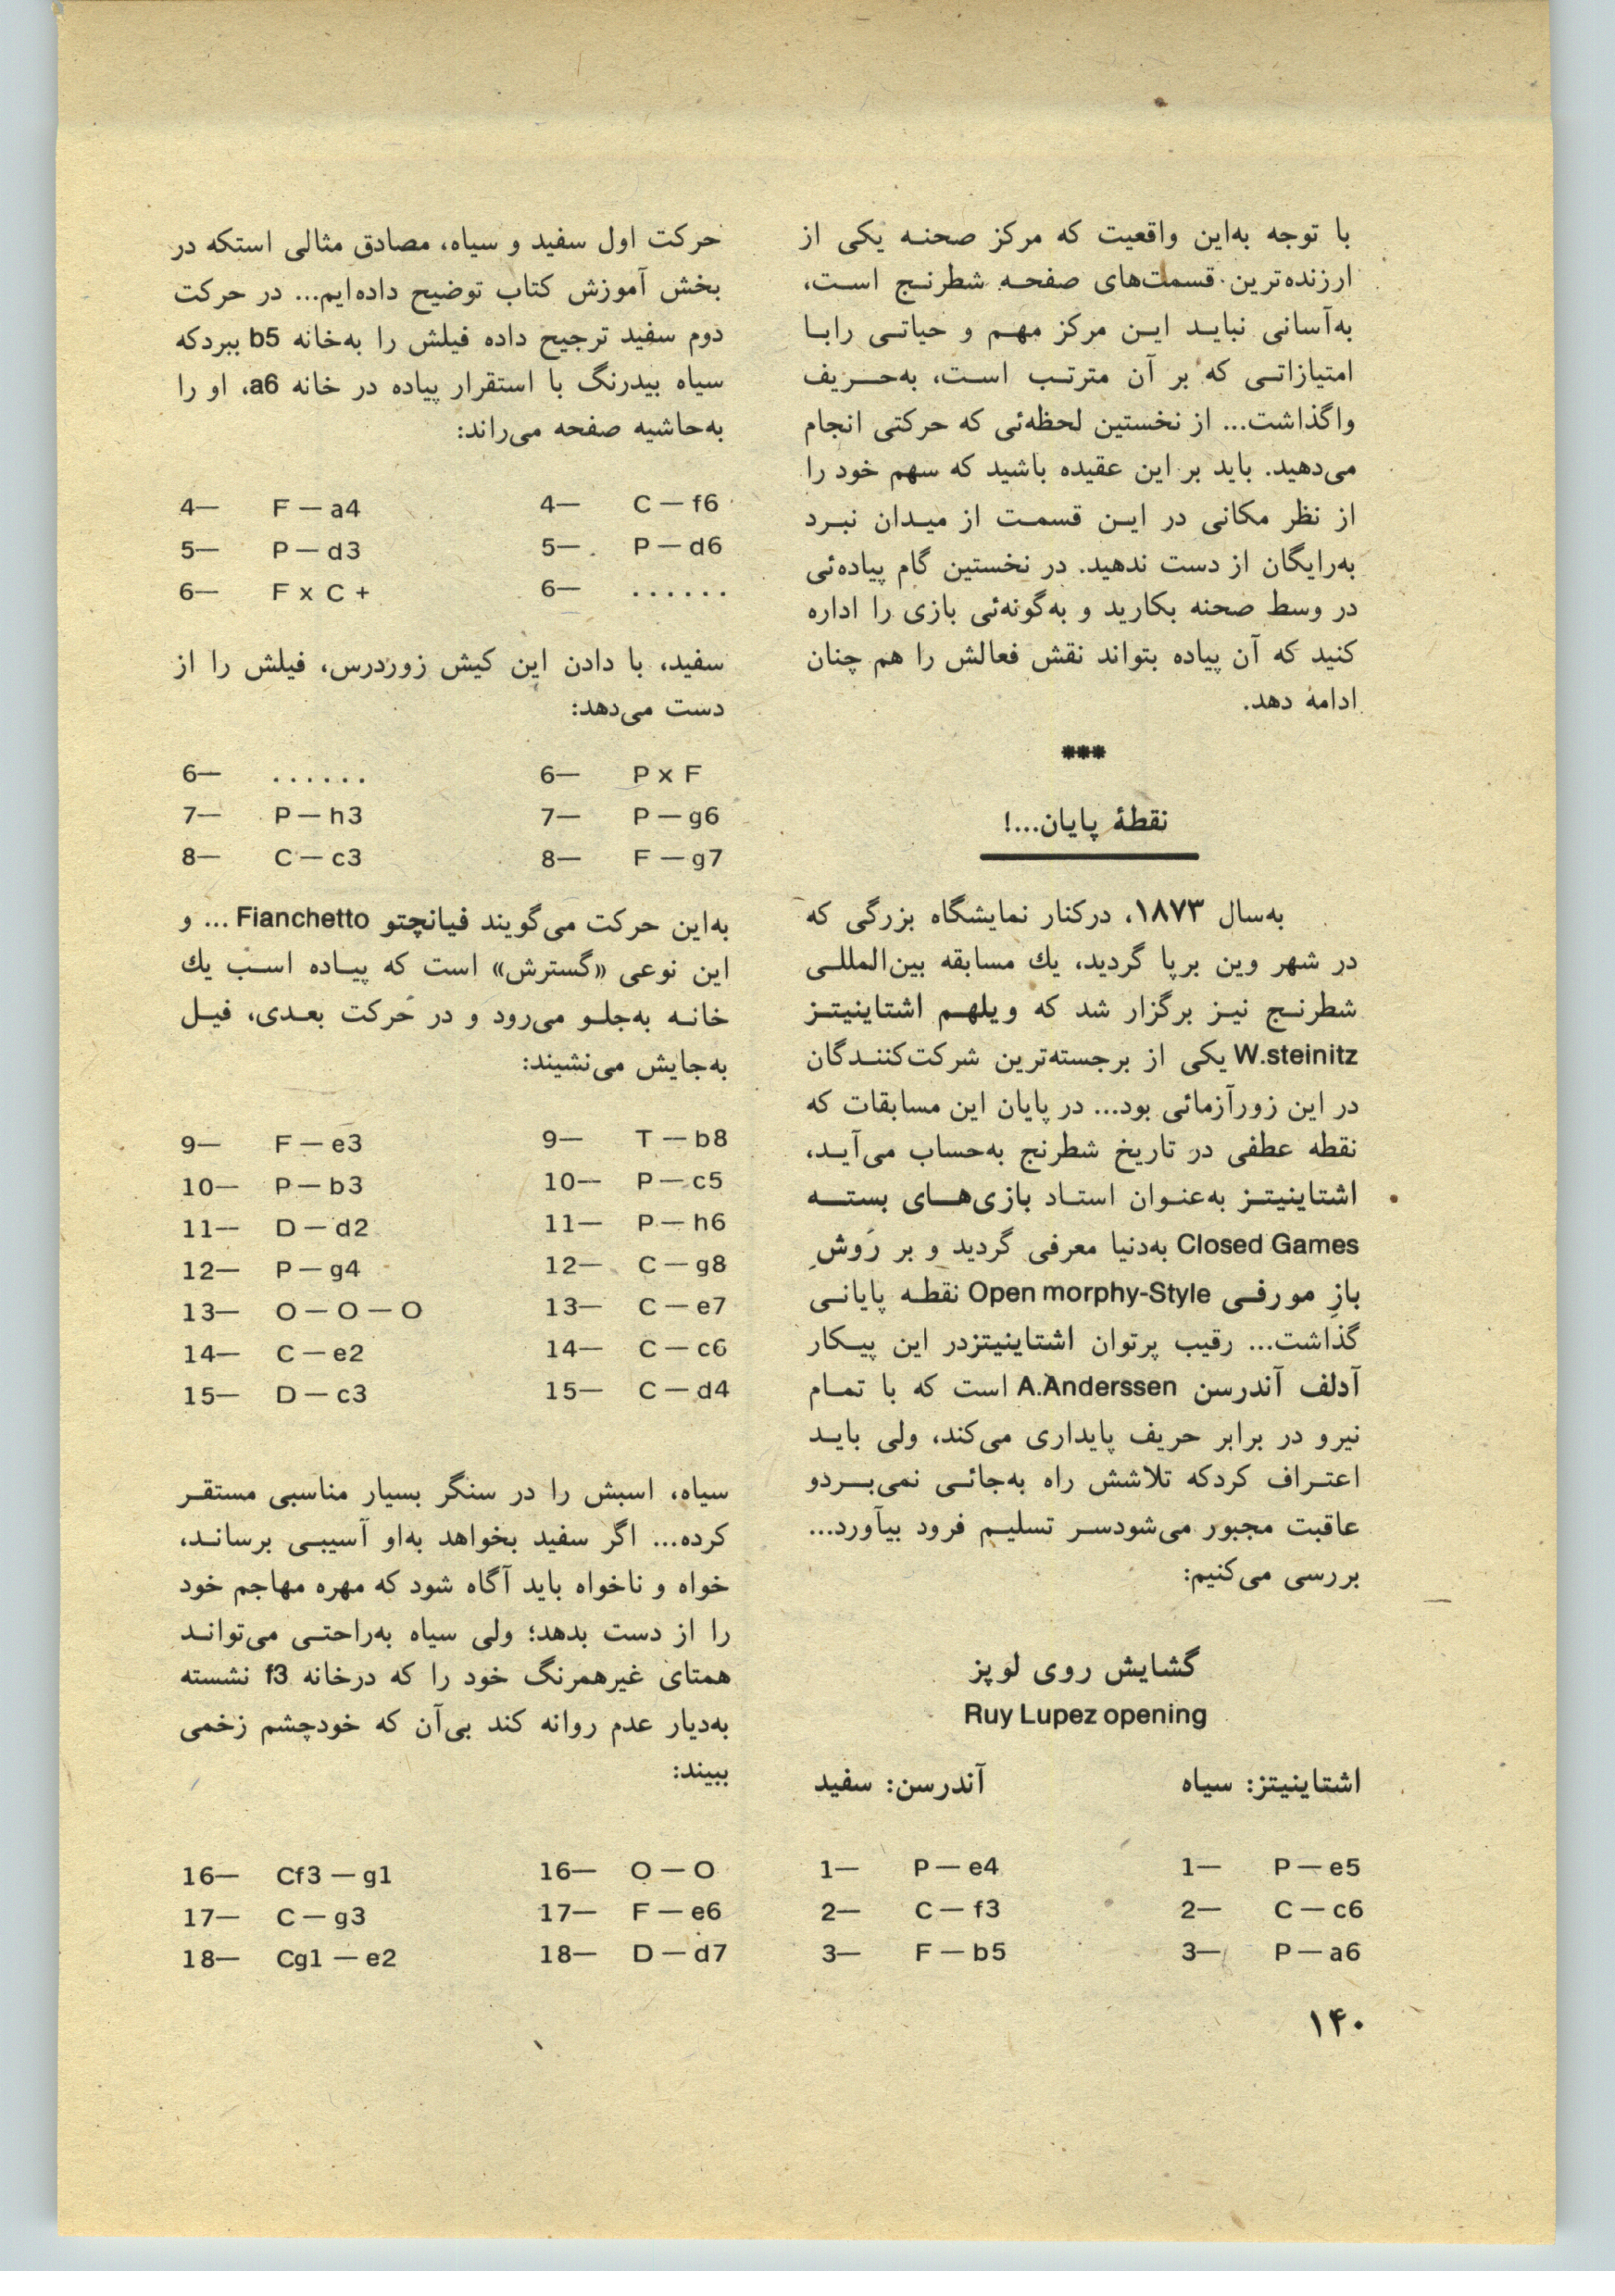 با توجه به‌این واقعیت که مرکز صحنه یکی از
ارزنده‌ترین قسمت‌های صفحه شطرنج است،
به‌آسانی نباید این مرکز مهم و حیاتی رابا
امتیازاتی که بر آن مترتب است، به‌حریف
واگذاشت... از نخستین لحظه‌ئی که حرکتی انجام
می‌دهید. باید بر این عقیده باشید که سهم خود را
از نظر مکانی در این قسمت از میدان نبرد
به‌رایگان از دست ندهید. در نخستین گام پیاده‌ئی
در وسط صحنه بکارید و به‌گونه‌ئی بازی را اداره
کنید که آن پیاده بتواند نقش فعالش را هم چنان
ادامه دهد.
***
نقطهٔ پایان...!
به‌سال ۱۸۷۳، درکنار نمایشگاه بزرگی که
در شهر وین برپا گردید، یك مسابقه بین‌المللی
شطرنج نیز برگزار شد که ویلهم اشتاینیتز
W.steinitz یکی از برجسته‌ترین شرکت‌کنندگان
در این زورآزمائی بود... در پایان این مسابقات که
نقطه عطفی در تاریخ شطرنج به‌حساب می‌آید،
اشتاینیتز به‌عنوان استاد بازی‌های بسته
Closed Games به‌دنیا معرفی گردید و بر رَوشِ
بازِ مورفی Open morphy-Style نقطه پایانی
گذاشت... رقیب پرتوان اشتاینیتزدر این پیکار
آدلف آندرسن A.Anderssen است که با تمام
نیرو در برابر حریف پایداری می‌کند، ولی باید
اعتراف کردکه تلاشش راه به‌جائی نمی‌بردو
عاقبت مجبور می‌شودسر تسلیم فرود بیآورد...
بررسی می‌کنیم:
گشایش روی لوپز
Ruy Lupez opening
اشتاینیتز: سیاه آندرسن: سفید
1— P — e4 1— P — e5
2— C — f3 2— C — c6
3— F — b5 3— P — a6
۱۴۰
حرکت اول سفید و سیاه، مصادق مثالی استکه در
بخش آموزش کتاب توضیح داده‌ایم... در حرکت
دوم سفید ترجیح داده فیلش را به‌خانه b5 ببردکه
سیاه بیدرنگ با استقرار پیاده در خانه a6، او را
به‌حاشیه صفحه می‌راند:
4— F — a4 4— C — f6
5— P — d3 5— P — d6
6— F x C + 6— ......
سفید، با دادن این کیش زوردرس، فیلش را از
دست می‌دهد:
6— ...... 6— P x F
7— P — h3 7— P — g6
8— C — c3 8— F — g7
به‌این حرکت می‌گویند فیانچتو Fianchetto ... و
این نوعی «گسترش» است که پیاده اسب یك
خانه به‌جلو می‌رود و در حرکت بعدی، فیل
به‌جایش می‌نشیند:
9— F — e3 9— T — b8
10— P — b3 10— P — c5
11— D — d2 11— P — h6
12— P — g4 12— C — g8
13— O — O — O 13— C — e7
14— C — e2 14— C — c6
15— D — c3 15— C — d4
سیاه، اسبش را در سنگر بسیار مناسبی مستقر
کرده... اگر سفید بخواهد به‌او آسیبی برساند،
خواه و ناخواه باید آگاه شود که مهره مهاجم خود
را از دست بدهد؛ ولی سیاه به‌راحتی می‌تواند
همتای غیرهمرنگ خود را که درخانه f3 نشسته
به‌دیار عدم روانه کند بی‌آن که خودچشم زخمی
ببیند:
16— Cf3 — g1 16— O — O
17— C — g3 17— F — e6
18— Cg1 — e2 18— D — d7